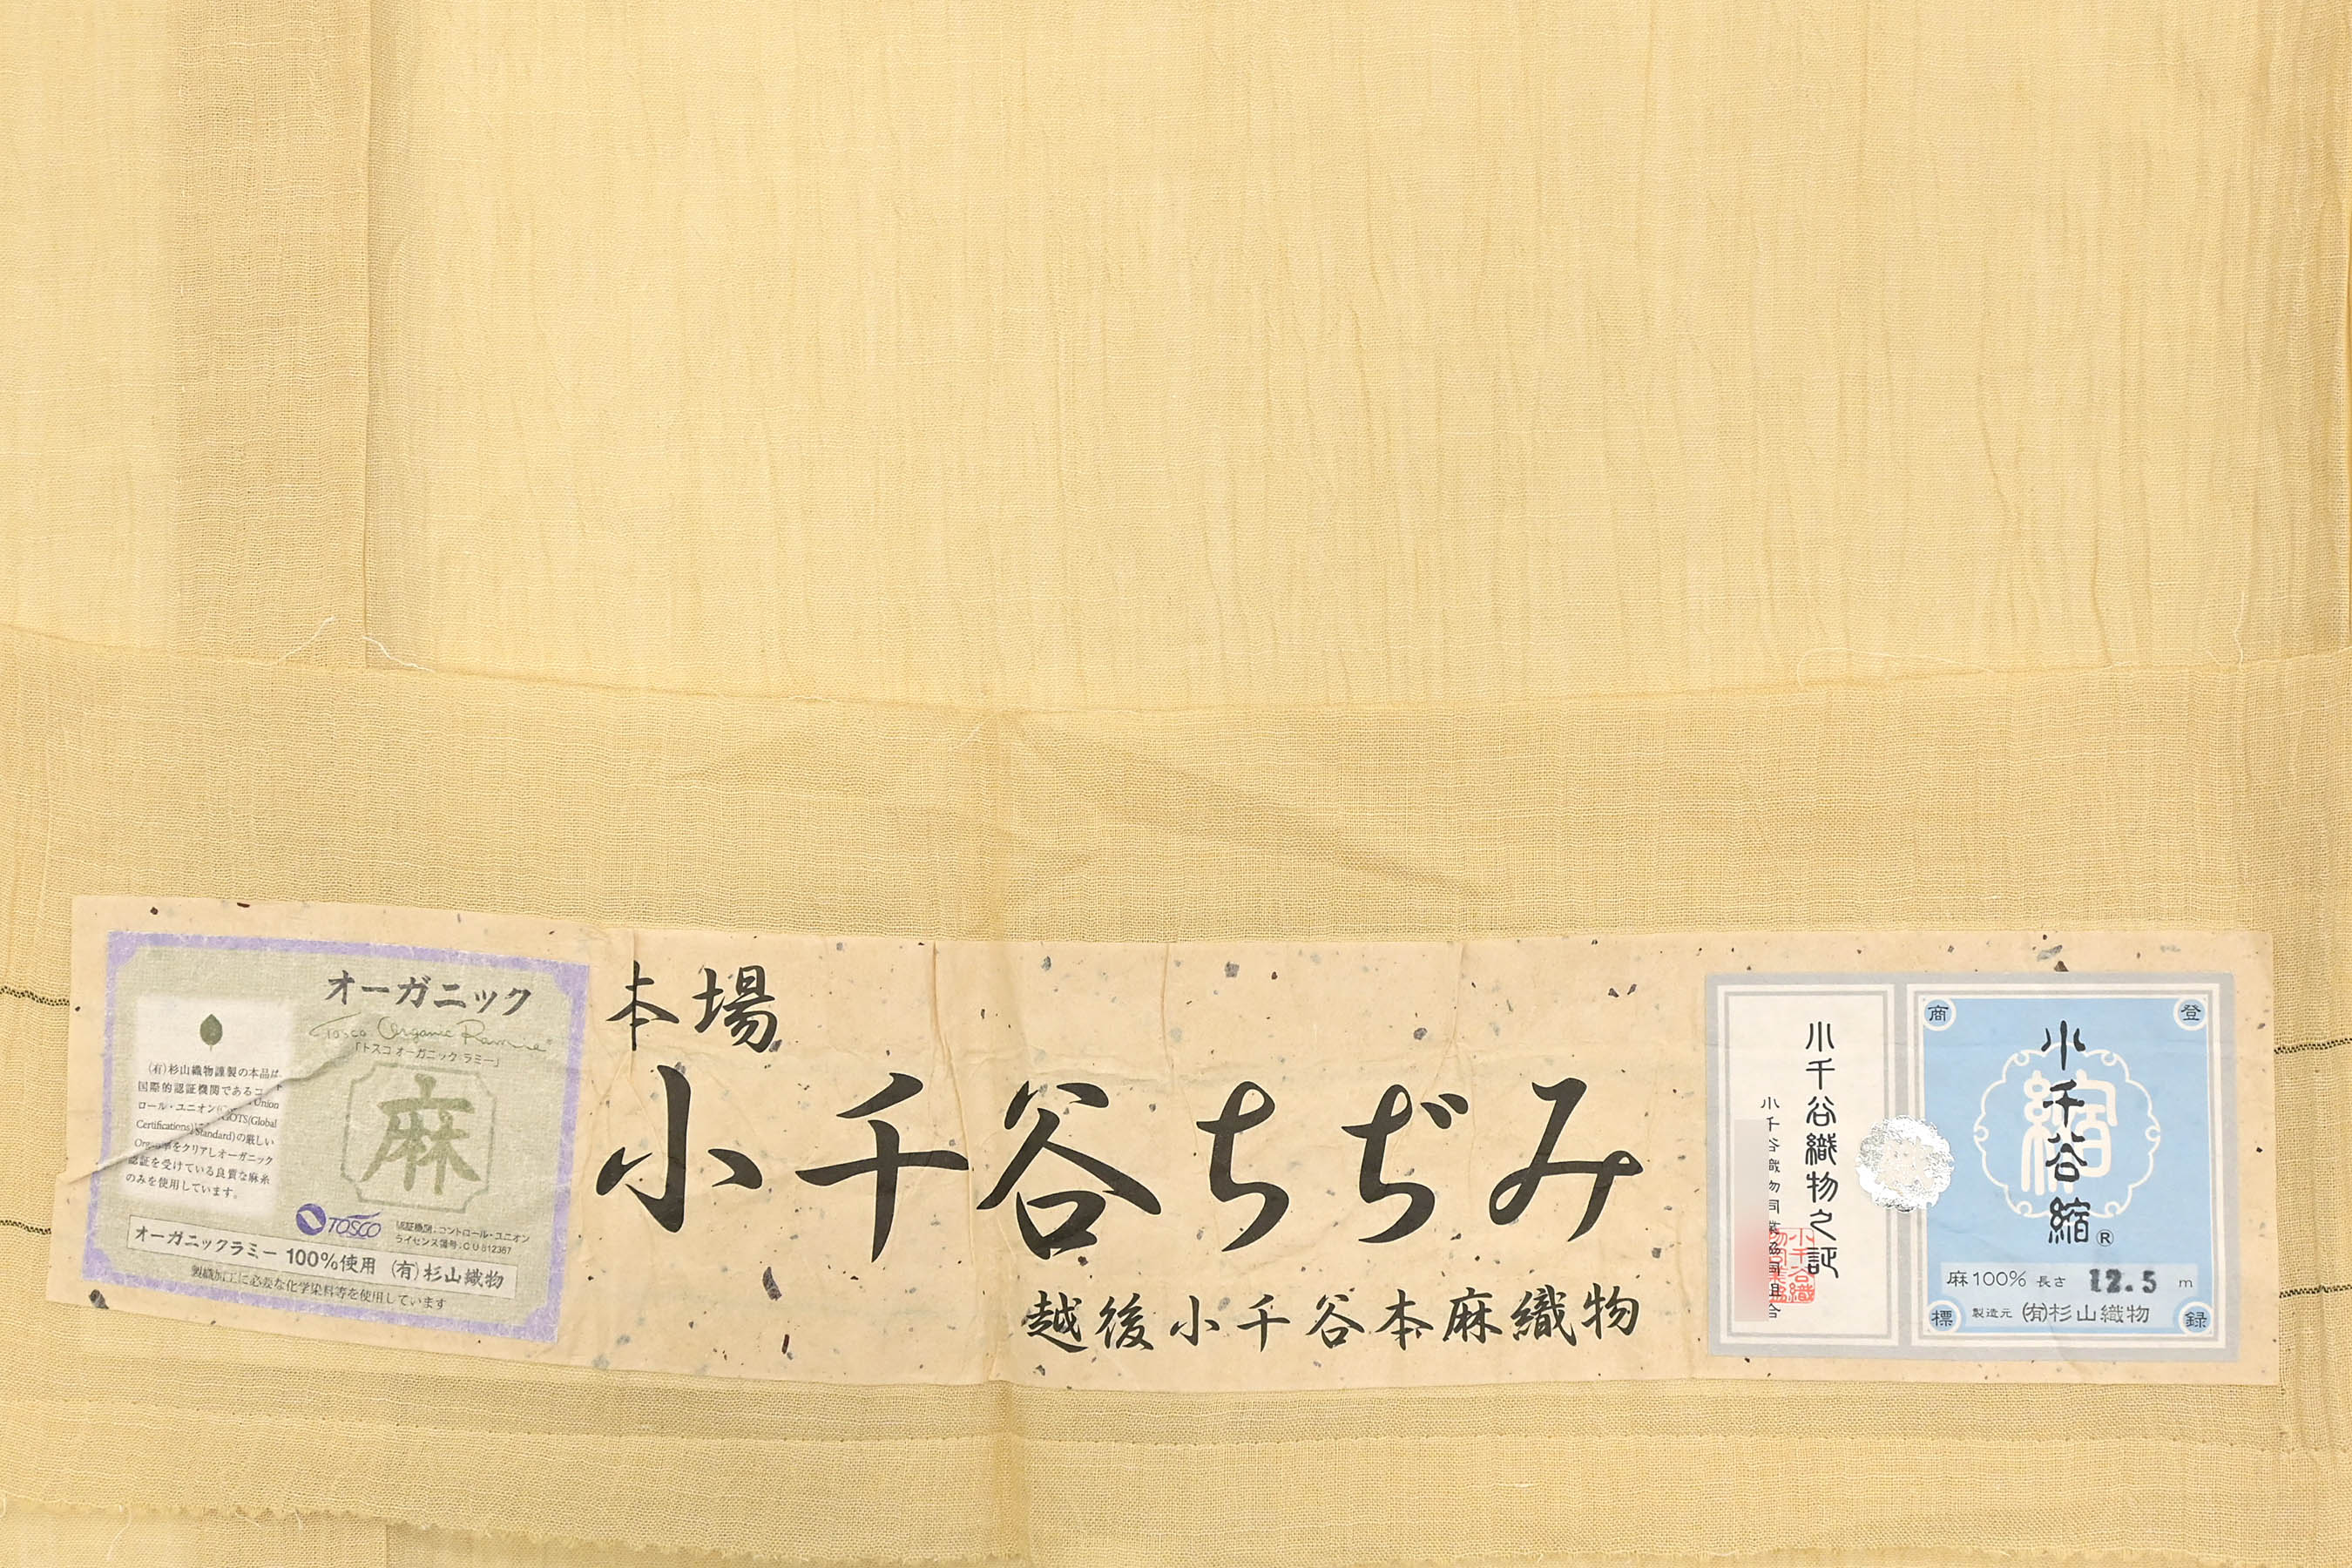 オーガニック
Tosco Organic Ramie
「トスコ オーガニック ラミー」
(有)杉山織物謹製の本品は
国際的認証機関であるコ
ロール・ユニオン Union
Certifications) GOTS(Global
Standard)の厳しい
をクリアしオーガニック
認証を受けている良質な麻糸
のみを使用しています。
麻
TOSCO
認証機関:コントロール・ユニオン
ライセンス番号:CU812367
オーガニックラミー 100%使用 (有)杉山織物
製織加工に必要な化学染料等を使用しています
本場
小千谷ちぢみ
越後小千谷本麻織物
小千谷織物之証
小千谷織物同業協同組合
商
登
縮
小千谷縮®
麻100% 長さ 12.5 m
標
製造元 (有)杉山織物
録